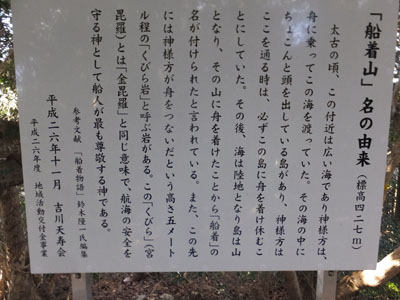 「船着山」名の由来(標高四二七m)
太古の頃、この付近は広い海であり神様方は、
舟に乗ってこの海を渡っていた。その海の中に
ちょこんと頭を出している島があり、神様方は
ここを通る時は、必ずこの島に舟を着け休むこ
とにしていた。その後、海は陸地となり島は山
となり、その山に舟を着けたことから「船着」の
名が付けられたと言われている。また、この先
には神様方が舟をつないだという高さ五メート
ル程の「くびら岩」と呼ぶ岩がある。この「くびら」(宮
毘羅)とは「金毘羅」と同じ意味で、航海の安全を
守る神として船人が最も尊敬する神である。
参考文献 「船着物語」鈴木隆一氏編集
平成二六年十一月 吉川天寿会
平成二六年度 地域活動交付金事業